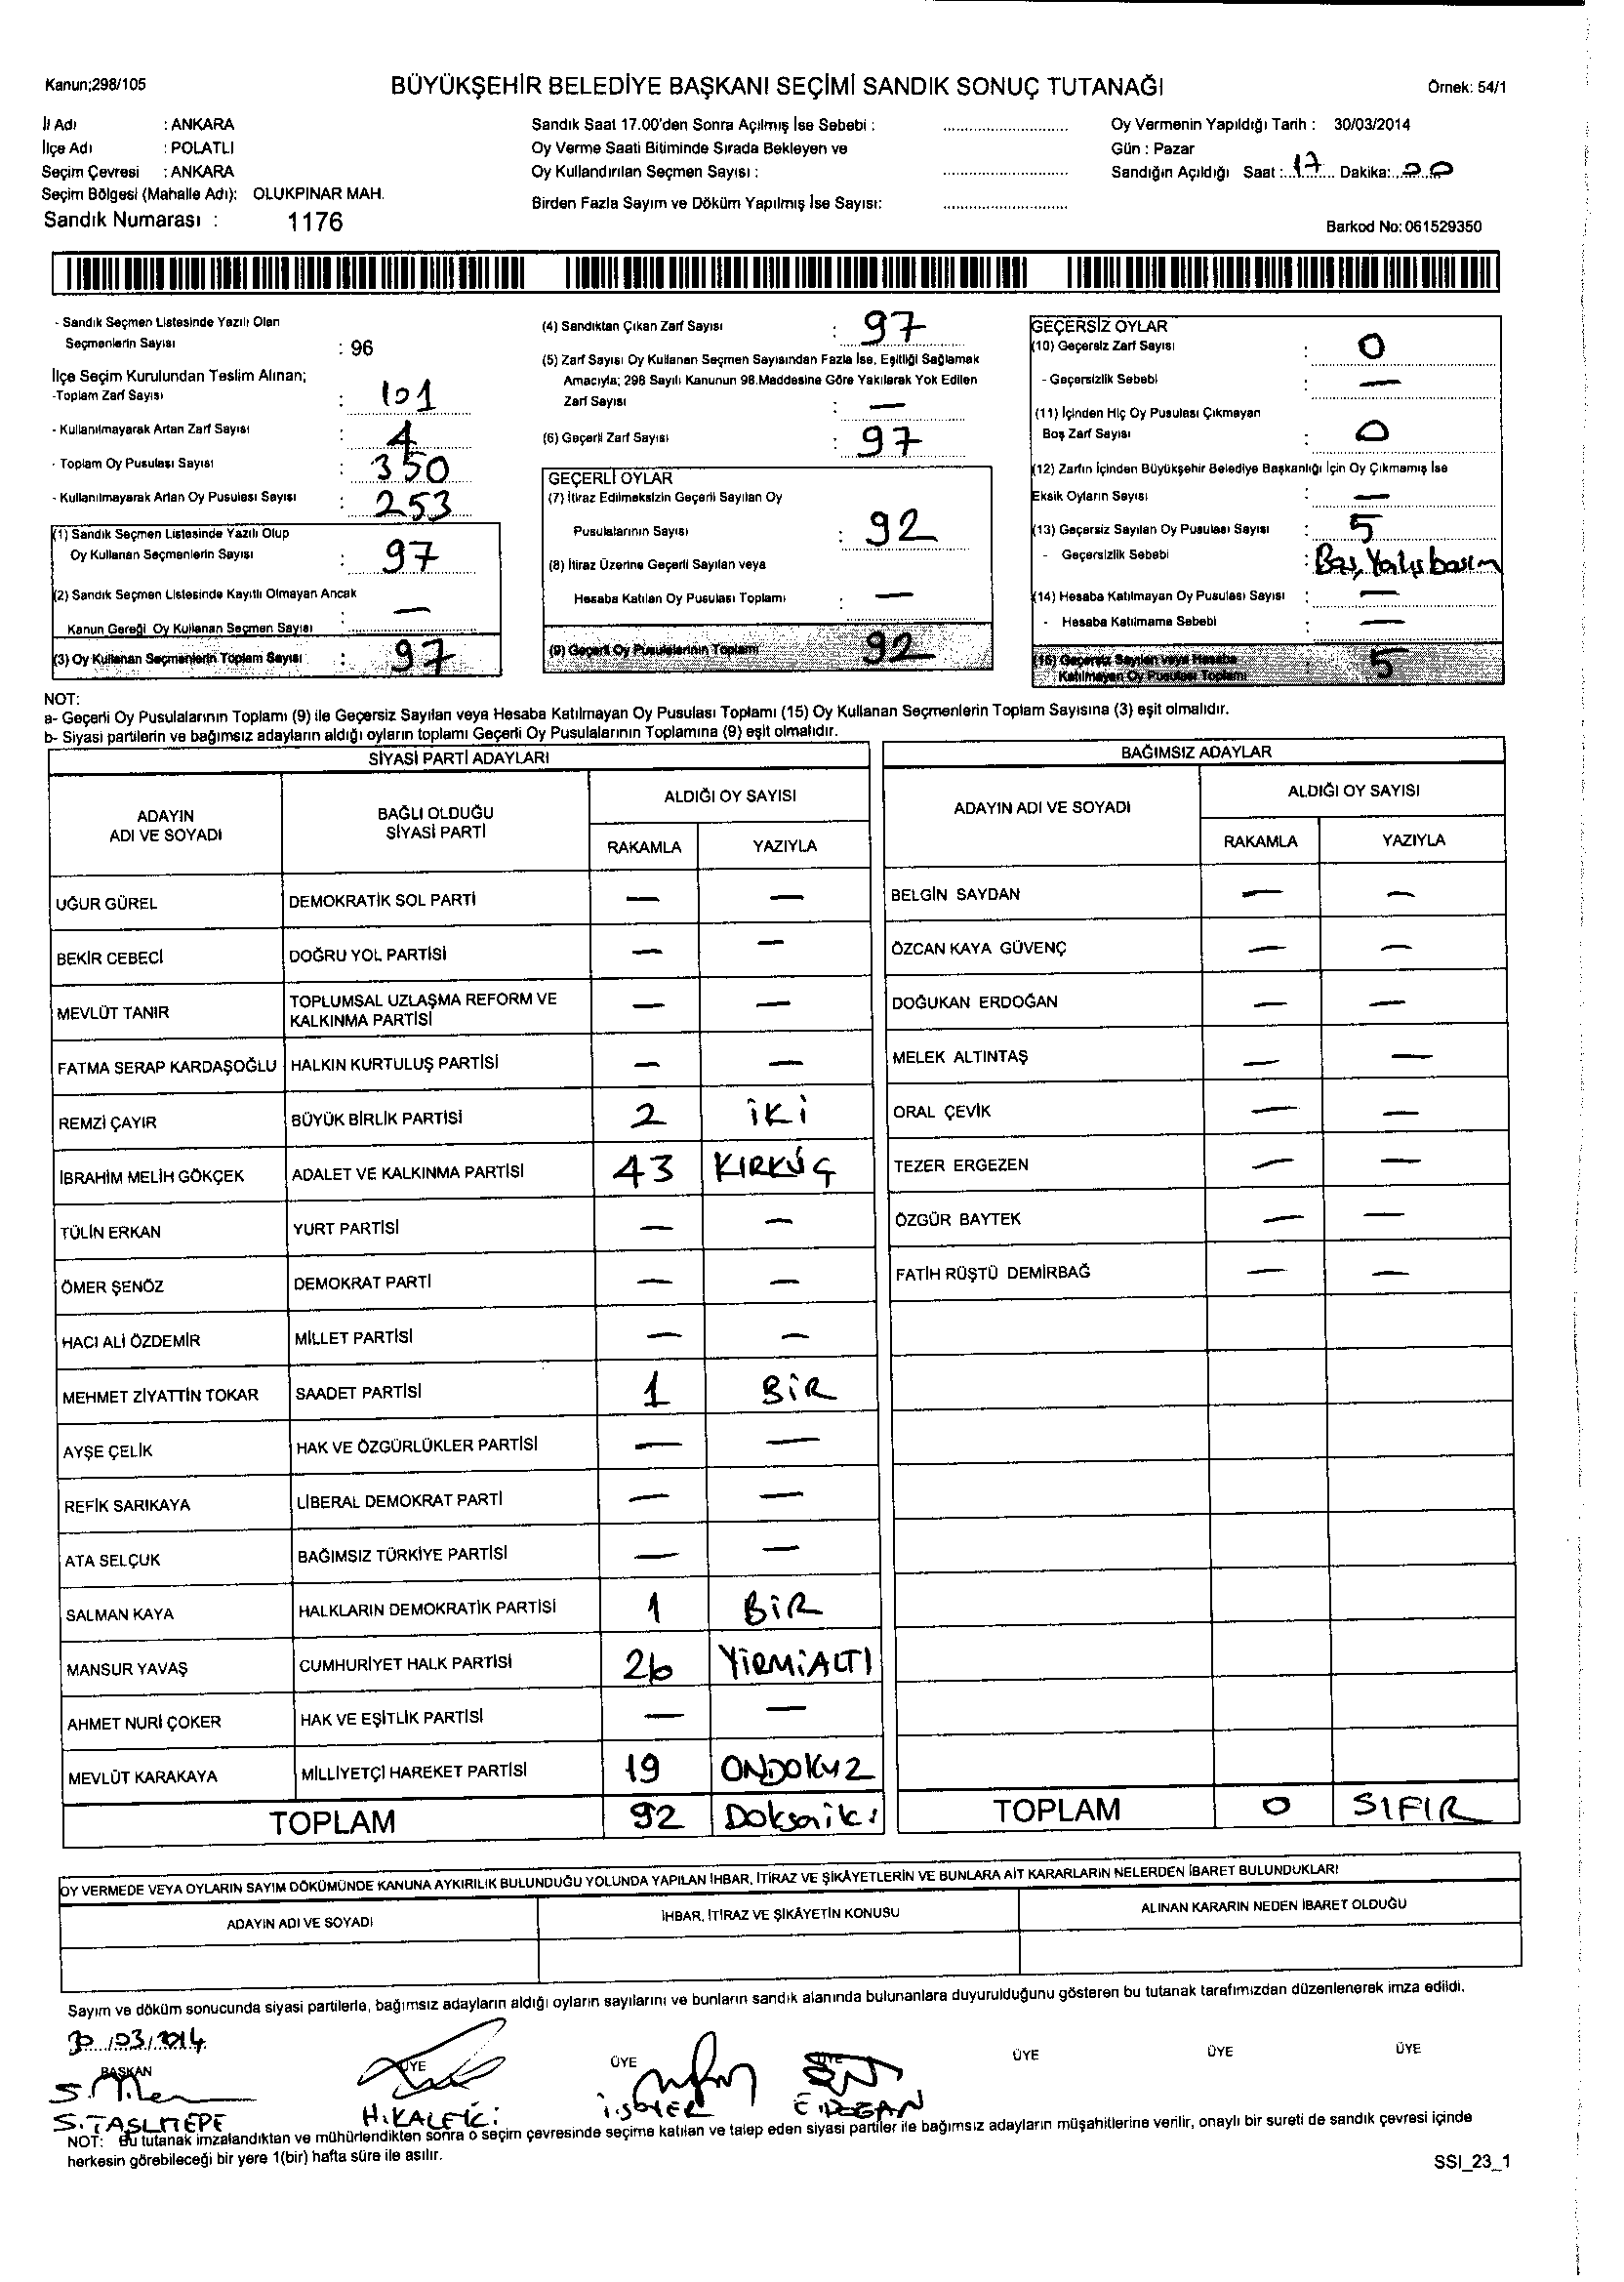 Kanun;298/105
BÜYÜKŞEHİR BELEDİYE BAŞKANI SEÇİMİ SANDIK SONUÇ TUTANAĞI
Örnek: 54/1
İl Adı : ANKARA
İlçe Adı : POLATLI
Seçim Çevresi : ANKARA
Seçim Bölgesi (Mahalle Adı): OLUKPINAR MAH.
Sandık Numarası : 1176
Sandık Saat 17.00'den Sonra Açılmış İse Sebebi :
Oy Verme Saati Bitiminde Sırada Bekleyen ve
Oy Kullandırılan Seçmen Sayısı :
Birden Fazla Sayım ve Döküm Yapılmış İse Sayısı:
Oy Vermenin Yapıldığı Tarih : 30/03/2014
Gün : Pazar
Sandığın Açıldığı Saat : 17 Dakika: 20
Barkod No: 061529350
- Sandık Seçmen Listesinde Yazılı Olan
Seçmenlerin Sayısı : 96
İlçe Seçim Kurulundan Teslim Alınan;
-Toplam Zarf Sayısı : 101
- Kullanılmayarak Artan Zarf Sayısı : 4
- Toplam Oy Pusulası Sayısı : 350
- Kullanılmayarak Artan Oy Pusulası Sayısı : 253
(1) Sandık Seçmen Listesinde Yazılı Olup
Oy Kullanan Seçmenlerin Sayısı : 97
(2) Sandık Seçmen Listesinde Kayıtlı Olmayan Ancak
Kanun Gereği Oy Kullanan Seçmen Sayısı : —
(3) Oy Kullanan Seçmenlerin Toplam Sayısı : 97
(4) Sandıktan Çıkan Zarf Sayısı : 97
(5) Zarf Sayısı Oy Kullanan Seçmen Sayısından Fazla İse, Eşitliği Sağlamak
Amacıyla; 298 Sayılı Kanunun 98.Maddesine Göre Yakılarak Yok Edilen
Zarf Sayısı : —
(6) Geçerli Zarf Sayısı : 97
GEÇERLİ OYLAR
(7) İtiraz Edilmeksizin Geçerli Sayılan Oy
Pusulalarının Sayısı : 92
(8) İtiraz Üzerine Geçerli Sayılan veya
Hesaba Katılan Oy Pusulası Toplamı : —
(9) Geçerli Oy Pusulalarının Toplamı 92
GEÇERSİZ OYLAR
(10) Geçersiz Zarf Sayısı : 0
- Geçersizlik Sebebi : —
(11) İçinden Hiç Oy Pusulası Çıkmayan
Boş Zarf Sayısı : 0
(12) Zarfın İçinden Büyükşehir Belediye Başkanlığı İçin Oy Çıkmamış İse
Eksik Oyların Sayısı : —
(13) Geçersiz Sayılan Oy Pusulası Sayısı : 5
- Geçersizlik Sebebi : Boş, Yalış basım
(14) Hesaba Katılmayan Oy Pusulası Sayısı : —
- Hesaba Katılmama Sebebi : —
(15) Geçersiz Sayılan veya Hesaba
Katılmayan Oy Pusulası Toplamı : 5
NOT:
a- Geçerli Oy Pusulalarının Toplamı (9) ile Geçersiz Sayılan veya Hesaba Katılmayan Oy Pusulası Toplamı (15) Oy Kullanan Seçmenlerin Toplam Sayısına (3) eşit olmalıdır.
b- Siyasi partilerin ve bağımsız adayların aldığı oyların toplamı Geçerli Oy Pusulalarının Toplamına (9) eşit olmalıdır.
SİYASİ PARTİ ADAYLARI
ADAYIN ADI VE SOYADI BAĞLI OLDUĞU SİYASİ PARTİ ALDIĞI OY SAYISI
RAKAMLA YAZIYLA
UĞUR GÜREL DEMOKRATİK SOL PARTİ — —
BEKİR CEBECİ DOĞRU YOL PARTİSİ — —
MEVLÜT TANIR TOPLUMSAL UZLAŞMA REFORM VE KALKINMA PARTİSİ — —
FATMA SERAP KARDAŞOĞLU HALKIN KURTULUŞ PARTİSİ — —
REMZİ ÇAYIR BÜYÜK BİRLİK PARTİSİ 2 İKİ
İBRAHİM MELİH GÖKÇEK ADALET VE KALKINMA PARTİSİ 43 KIRKÜÇ
TÜLİN ERKAN YURT PARTİSİ — —
ÖMER ŞENÖZ DEMOKRAT PARTİ — —
HACI ALİ ÖZDEMİR MİLLET PARTİSİ — —
MEHMET ZİYATTİN TOKAR SAADET PARTİSİ 1 BİR
AYŞE ÇELİK HAK VE ÖZGÜRLÜKLER PARTİSİ — —
REFİK SARIKAYA LİBERAL DEMOKRAT PARTİ — —
ATA SELÇUK BAĞIMSIZ TÜRKİYE PARTİSİ — —
SALMAN KAYA HALKLARIN DEMOKRATİK PARTİSİ 1 BİR
MANSUR YAVAŞ CUMHURİYET HALK PARTİSİ 26 YİRMİALTI
AHMET NURİ ÇOKER HAK VE EŞİTLİK PARTİSİ — —
MEVLÜT KARAKAYA MİLLİYETÇİ HAREKET PARTİSİ 19 ONDOKUZ
TOPLAM 92 Doksaniki
BAĞIMSIZ ADAYLAR
ADAYIN ADI VE SOYADI ALDIĞI OY SAYISI
RAKAMLA YAZIYLA
BELGİN SAYDAN — —
ÖZCAN KAYA GÜVENÇ — —
DOĞUKAN ERDOĞAN — —
MELEK ALTINTAŞ — —
ORAL ÇEVİK — —
TEZER ERGEZEN — —
ÖZGÜR BAYTEK — —
FATİH RÜŞTÜ DEMİRBAĞ — —
TOPLAM 0 SIFIR
OY VERMEDE VEYA OYLARIN SAYIM DÖKÜMÜNDE KANUNA AYKIRILIK BULUNDUĞU YOLUNDA YAPILAN İHBAR, İTİRAZ VE ŞİKÂYETLERİN VE BUNLARA AİT KARARLARIN NELERDEN İBARET BULUNDUKLARI
ADAYIN ADI VE SOYADI İHBAR, İTİRAZ VE ŞİKÂYETİN KONUSU ALINAN KARARIN NEDEN İBARET OLDUĞU
Sayım ve döküm sonucunda siyasi partilerle, bağımsız adayların aldığı oyların sayılarını ve bunların sandık alanında bulunanlara duyurulduğunu gösteren bu tutanak tarafımızdan düzenlenerek imza edildi.
30/03/2014
BAŞKAN ÜYE ÜYE ÜYE ÜYE ÜYE ÜYE
S.TAŞLITEPE H.KALFİC:
NOT: Bu tutanak imzalandıktan ve mühürlendikten sonra o seçim çevresinde seçime katılan ve talep eden siyasi partiler ile bağımsız adayların müşahitlerine verilir, onaylı bir sureti de sandık çevresi içinde
herkesin görebileceği bir yere 1(bir) hafta süre ile asılır.
SSI_23_1